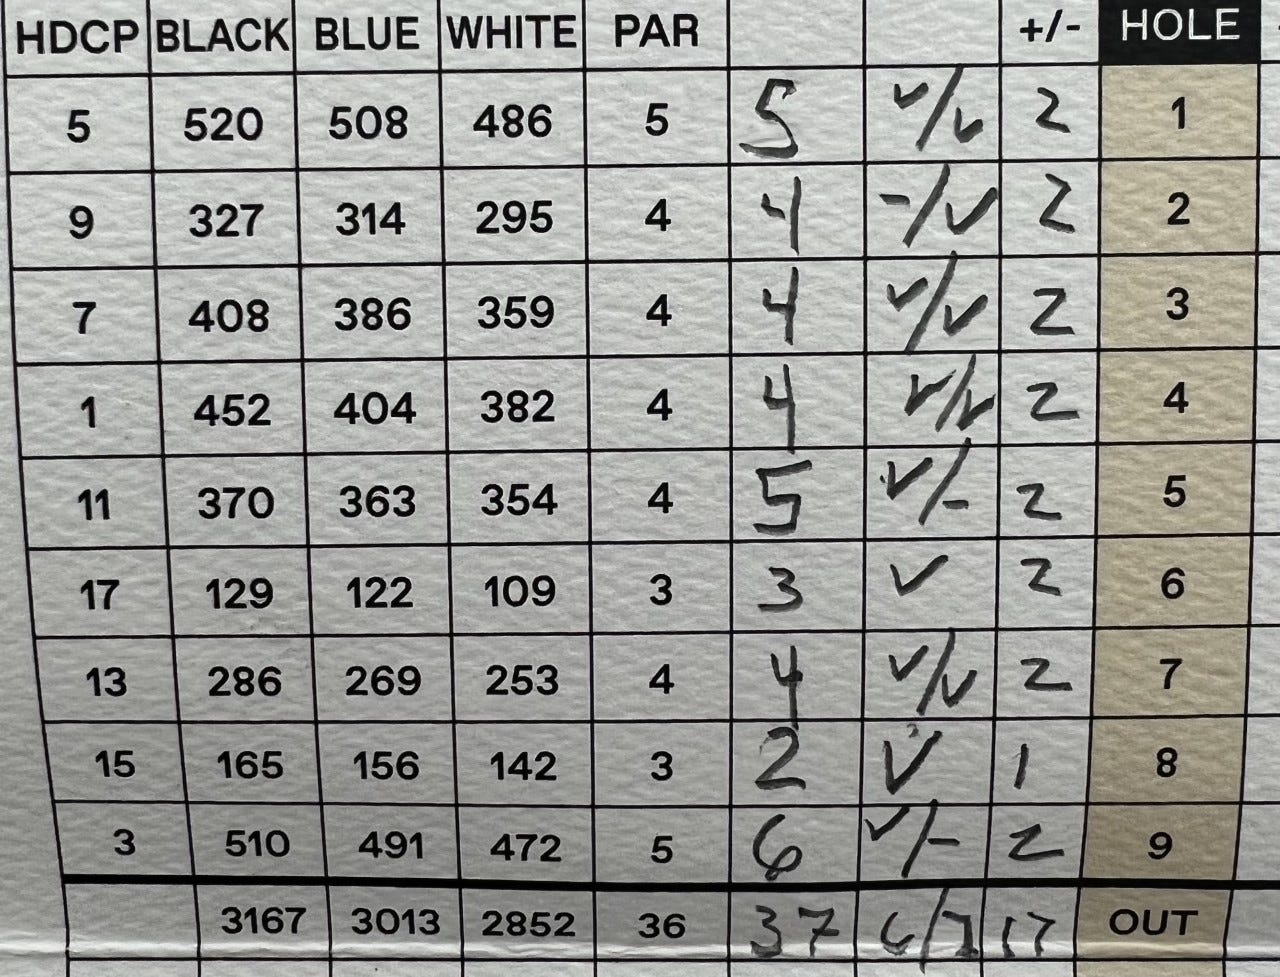 HDCP BLACK BLUE WHITE PAR +/- HOLE
5 520 508 486 5 5 ✓/✓ 2 1
9 327 314 295 4 4 -/✓ 2 2
7 408 386 359 4 4 ✓/✓ 2 3
1 452 404 382 4 4 ✓/✓ 2 4
11 370 363 354 4 5 ✓/- 2 5
17 129 122 109 3 3 ✓ 2 6
13 286 269 253 4 4 ✓/✓ 2 7
15 165 156 142 3 2 ✓ 1 8
3 510 491 472 5 6 ✓/- 2 9
3167 3013 2852 36 37 6/7 17 OUT